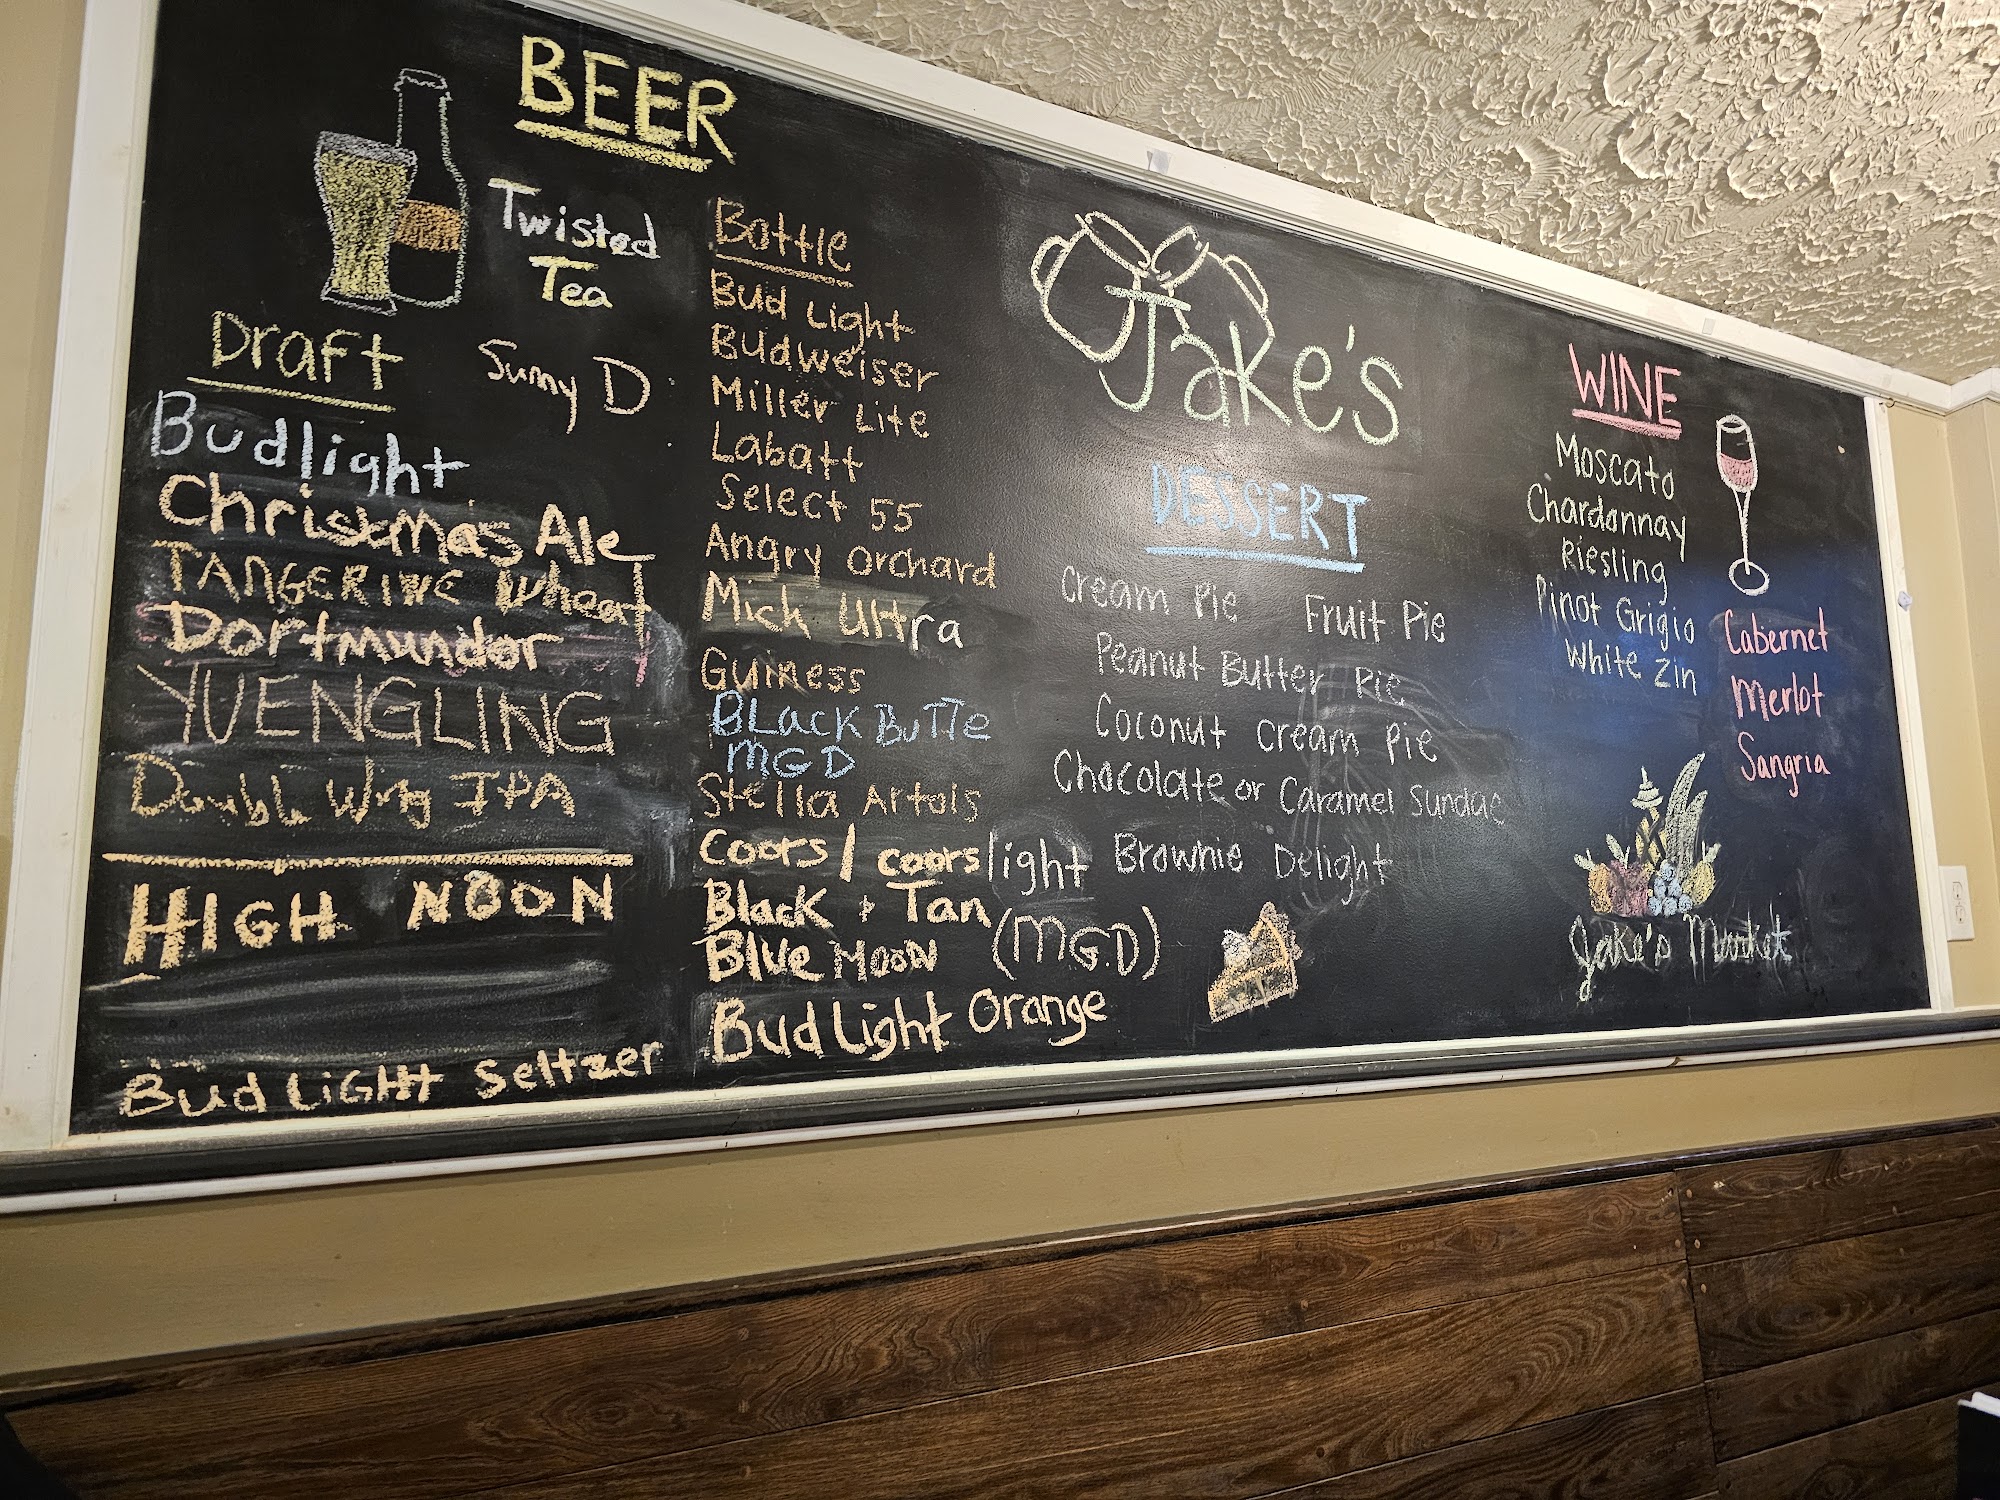 BEER
Twisted
Tea
Sunny D
Draft
Budlight
Christmas Ale
TANGERINE Wheat
Dortmunder
YUENGLING
Double Wing IPA
HIGH NOON
Bud LiGHt Seltzer
Bottle
Bud Light
Budweiser
Miller Lite
Labatt
Select 55
Angry Orchard
Mick Ultra
Guiness
BLack BuTTe
MGD
Stella Artois
Coors / coors light
Black + Tan
Blue Moon (MGD)
Bud Light Orange
Jake's
DESSERT
Cream Pie Fruit Pie
Peanut Butter Pie
Coconut Cream Pie
Chocolate or Caramel Sundae
Brownie Delight
WINE
Moscato
Chardonnay
Riesling
Pinot Grigio
White Zin
Cabernet
Merlot
Sangria
Jake's Market